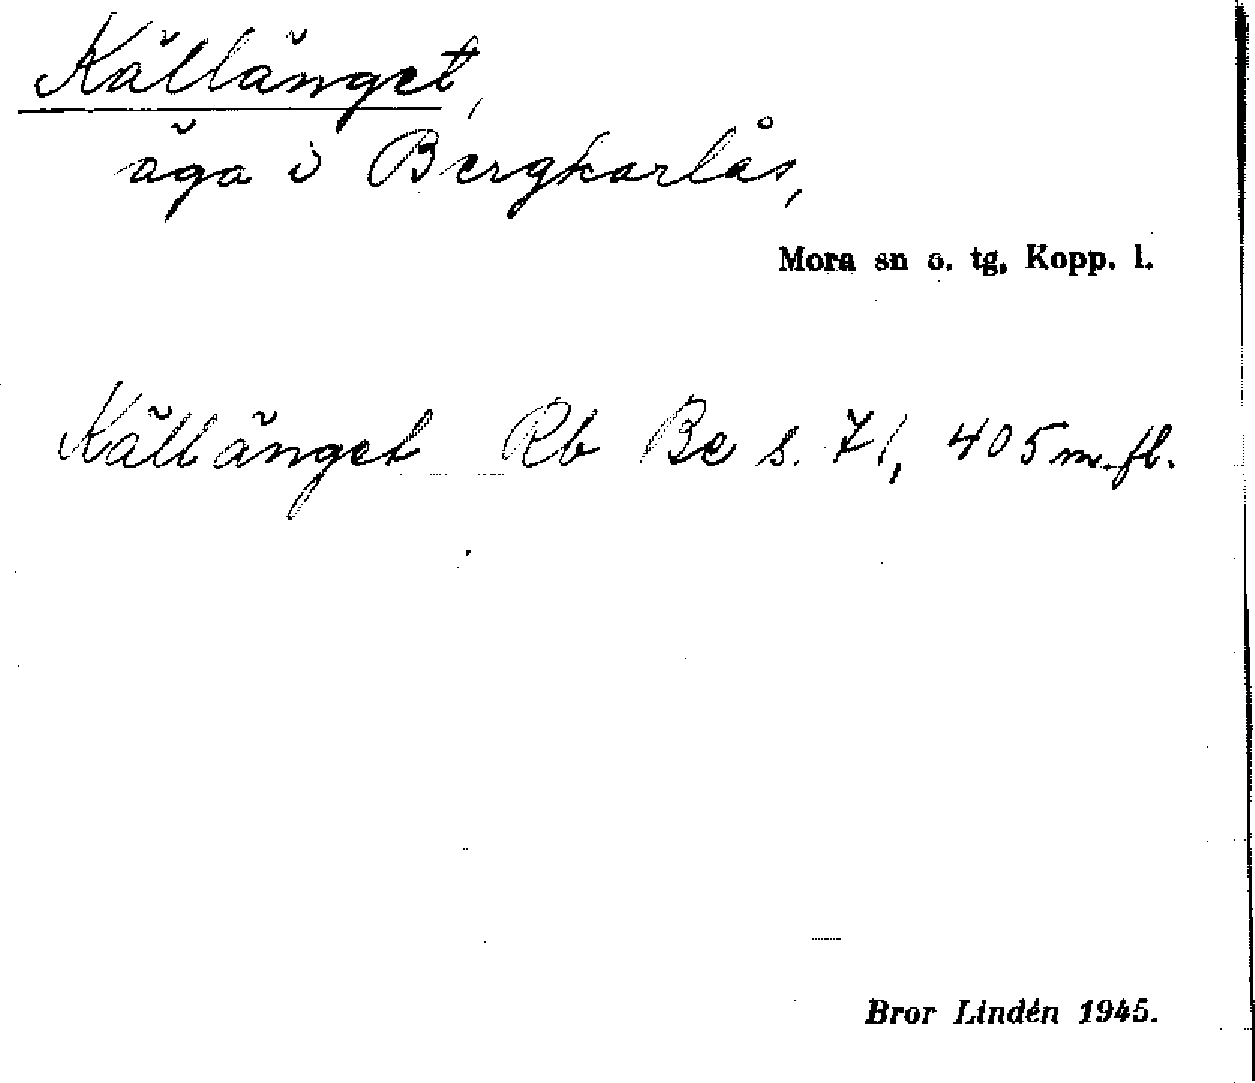 Källänget,
äga i Bergkarlås,
Mora sn o. tg, Kopp. l.
Källänget Rb Be s. 71, 405 m. fl.
Bror Lindén 1945.